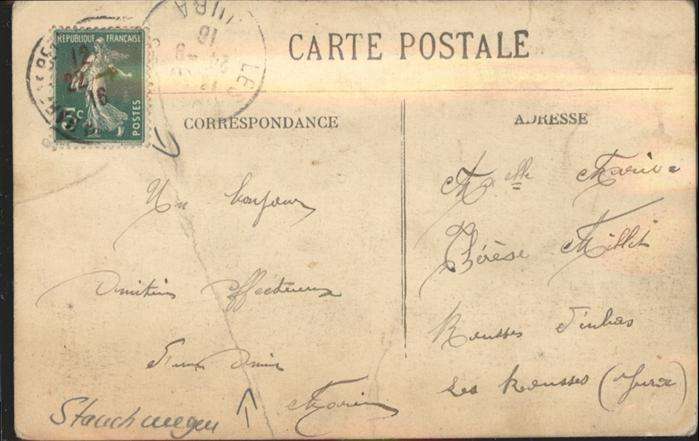 RÉPUBLIQUE FRANÇAISE
5c
POSTES
CARTE POSTALE
CORRESPONDANCE
ADRESSE
Un bonjour
Amitiés affectueuses
d'une Amie
Marie
Melle Marie
Thérèse Millet
Rousses d'inbas
Les Rousses (Jura